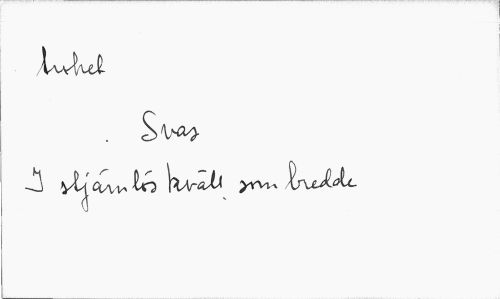 Enhet
Svas
I stjärnlös kväll som bredde